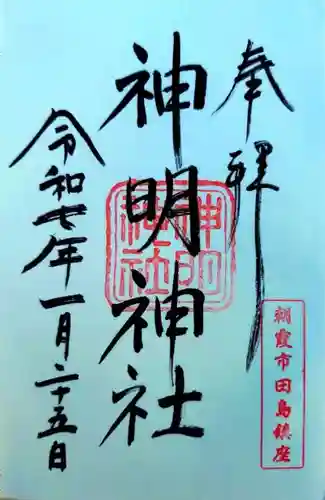 奉拝
朝霞市田島鎮座
神明神社
神明神社
令和七年一月二十五日